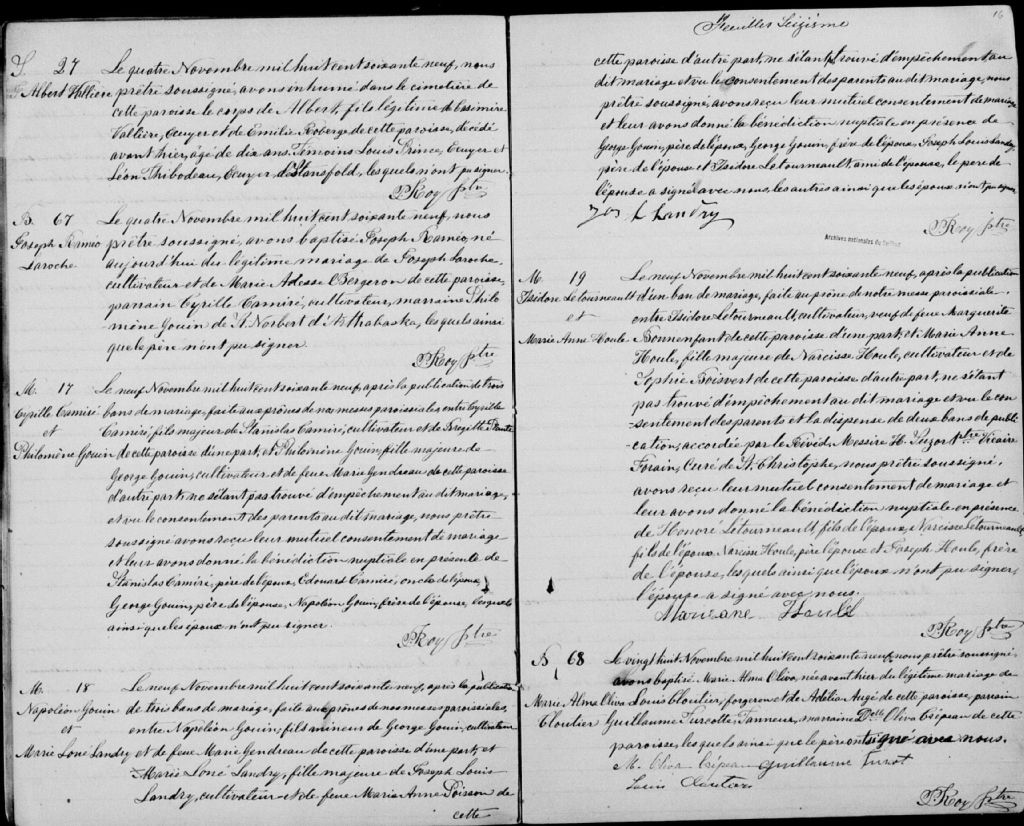 S. 27 Le quatre Novembre mil huit cent soixante neuf, nous
Albert Vallière prêtre soussigné, avons inhumé dans le cimetière de
cette paroisse le corps de Albert, fils légitime d'Essimère
Vallière, Ecuyer et de Emilie Roberge de cette paroisse, décédé
avant hier, âgé de dix ans. Temoins Louis Prince, Ecuyer et
Léon Thibodeau, Ecuyer d'Stansfold, lesquels n'ont pu signer.
P. Roy ptre
B. 67 Le quatre Novembre mil huit cent soixante neuf, nous
Joseph Raméo prêtre soussigné, avons baptisé Joseph Raméo, né
Laroche aujourd'hui du légitime mariage de Joseph Laroche,
cultivateur et de Marie Adesse Bergeron de cette paroisse,
parrain Cyrille Camiré, cultivateur, marraine Philo-
mène Gouin de St. Norbert d'Arthabaska, lesquels ainsi
que le père n'ont pu signer.
P. Roy ptre
M. 17 Le neuf Novembre mil huit cent soixante neuf, après la publication de trois
Cyrille Camiré bans de mariage, faite aux prônes de nos messes paroissiales, entre Cyrille
et Camiré, fils majeur de Stanislas Camiré, cultivateur et de Brigitte Plante
Philomène Gouin de cette paroisse d'une part, et Philomène Gouin, fille majeure de
George Gouin, cultivateur et de feue Marie Gendreau de cette paroisse
d'autre part, ne s'étant pas trouvé d'empêchement au dit mariage,
et vu le consentement des parents au dit mariage, nous prêtre
soussigné avons reçu leur mutuel consentement de mariage
et leur avons donné la bénédiction nuptiale en présence de
Stanislas Camiré, père de l'époux, Edouard Camiré, oncle de l'époux,
George Gouin, père de l'épouse, Napoléon Gouin, frère de l'épouse, lesquels
ainsi que les époux n'ont pu signer.
P. Roy ptre
M. 18 Le neuf Novembre mil huit cent soixante neuf, après la publication
Napoléon Gouin de trois bans de mariage, faite aux prônes de nos messes paroissiales,
et entre Napoléon Gouin, fils mineur de George Gouin, cultivateur
Marie Loné Landry et de feue Marie Gendreau de cette paroisse d'une part, et
Marie Loné Landry, fille majeure de Joseph Louis
Landry, cultivateur et de feue Marie Anne Poisson de
cette
16
Feuillet Seizième
cette paroisse d'autre part, ne s'étant trouvé d'empêchement au
dit mariage et vu le consentement des parents au dit mariage, nous
prêtre soussigné, avons reçu leur mutuel consentement de mariage
et leur avons donné la bénédiction nuptiale en présence de
George Gouin, père de l'époux, George Gouin, frère de l'époux, Joseph Louis Landry,
père de l'épouse et Isidore Letourneault, ami de l'épouse, le père de
l'épouse a signé avec nous, les autres ainsi que les époux n'ont pu signer.
Jos L Landry
P. Roy ptre
Archives nationales du Québec
M. 19 Le neuf Novembre mil huit cent soixante neuf, après la publication
Isidore Letourneault d'un ban de mariage, faite au prône de notre messe paroissiale.
et entre Isidore Letourneault, cultivateur, veuf de feue Marguerite
Marie Anne Houle Bonnenfant de cette paroisse d'une part, et Marie Anne
Houle, fille majeure de Narcisse Houle, cultivateur et de
Sophie Boisvert de cette paroisse d'autre part, ne s'étant
pas trouvé d'empêchement au dit mariage et vu le con-
sentement des parents et la dispense de deux bans de publi-
cation, accordée par le Révd. Messire H. Suzor ptre Vicaire
Forain, Curé de St. Christophe, nous prêtre soussigné.
avons reçu leur mutuel consentement de mariage et
leur avons donné la bénédiction nuptiale en présence
de Honoré Letourneault, fils de l'époux, Narcisse Letourneault,
fils de l'époux, Narcisse Houle, père l'épouse et Joseph Houle, frère
de l'épouse, lesquels ainsi que l'époux n'ont pu signer,
l'épouse a signé avec nous.
Marieane Houle
P. Roy ptre
B 68 Le vingt huit Novembre mil huit cent soixante neuf, nous prêtre soussigné.
avons baptisé Marie Alma Oliva, née avant hier du légitime mariage de
Marie, Alma Oliva Louis Cloutier, forgeron et de Adélia Augé de cette paroisse, parrain
Cloutier Guillaume Turcotte, Tanneur, marraine Delle Oliva Crépeau de cette
paroisse, lesquels ainsi que le père ont signé avec nous.
M. Oliva Crépeau Guillaume Turcot
Louis Cloutier
P. Roy ptre